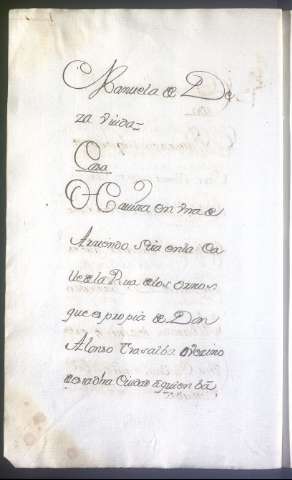 Manuela de De
za viuda
Casa
Havita en una de
Arriendo, sita en la Ca
lle de la Rua de los ornos
que es propia de Don
Alonso Trasalba vecino
desta dha Ciudad a quien